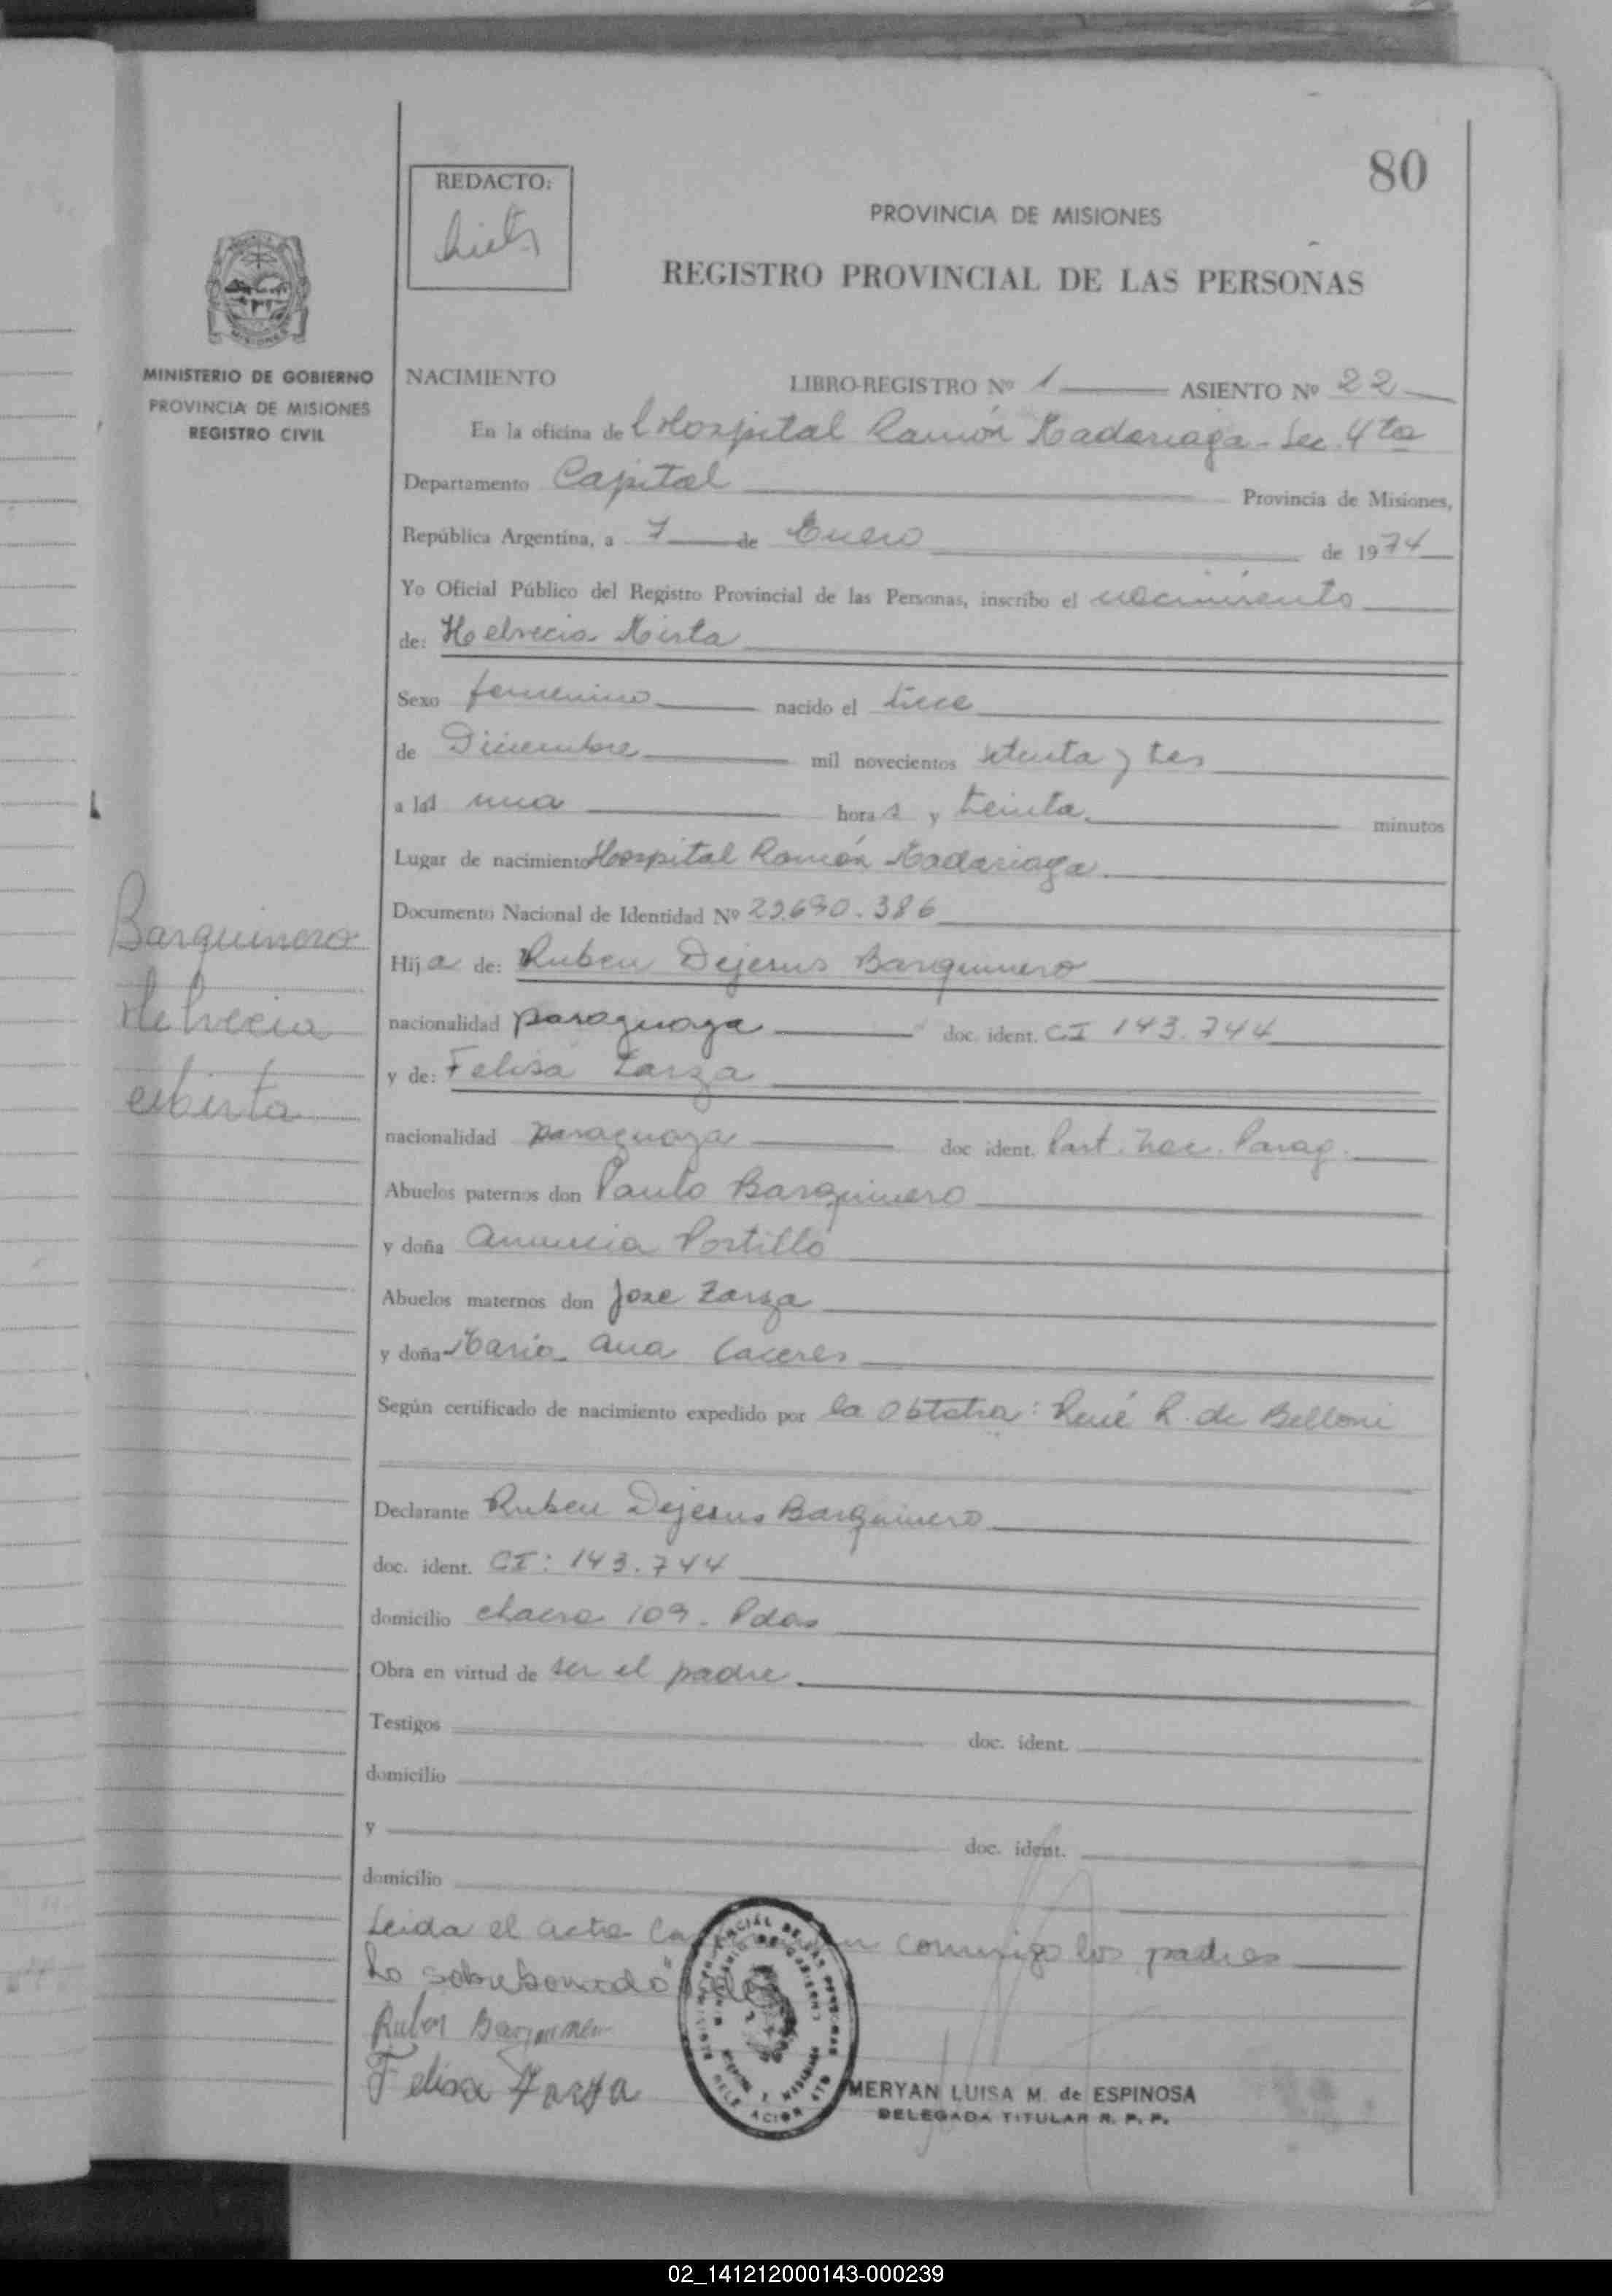 80
REDACTO:
PROVINCIA DE MISIONES
REGISTRO PROVINCIAL DE LAS PERSONAS
MINISTERIO DE GOBIERNO
PROVINCIA DE MISIONES
REGISTRO CIVIL
NACIMIENTO LIBRO-REGISTRO Nº 1 ASIENTO Nº 22
En la oficina de l Hospital Ramón Madariaga - Sec. 4ta
Departamento Capital Provincia de Misiones,
República Argentina, a 7 de Enero de 1974
Yo Oficial Público del Registro Provincial de las Personas, inscribo el nacimiento
de: Helvecia Mirta
Sexo femenino nacido el trece
de Diciembre mil novecientos setenta y tres
a la una hora s y treinta minutos
Lugar de nacimiento Hospital Ramón Madariaga.
Documento Nacional de Identidad Nº 23.690.386
Barquinero
Helvecia
Mirta
Hija de: Ruben Dejesus Barquinero
nacionalidad paraguaya doc. ident. CI 143.744
y de: Felisa Zarza
nacionalidad paraguaya doc ident. Part. Nac. Parag.
Abuelos paternos don Paulo Barquinero
y doña Anuncia Portillo
Abuelos maternos don Jose Zarza
y doña Maria Ana Caceres
Según certificado de nacimiento expedido por la Obstetra: René R. de Belloni
Declarante Ruben Dejesus Barquinero
doc. ident. CI: 143.744
domicilio chacra 109 - Pdas
Obra en virtud de ser el padre.
Testigos doc. ident.
domicilio
y doc. ident.
domicilio
Leida el acta conmigo los padres
Lo sobreborrado
Ruben Barquinero
Felisa Zarza
MERYAN LUISA M. de ESPINOSA
DELEGADA TITULAR R. P. P.
02_141212000143-000239